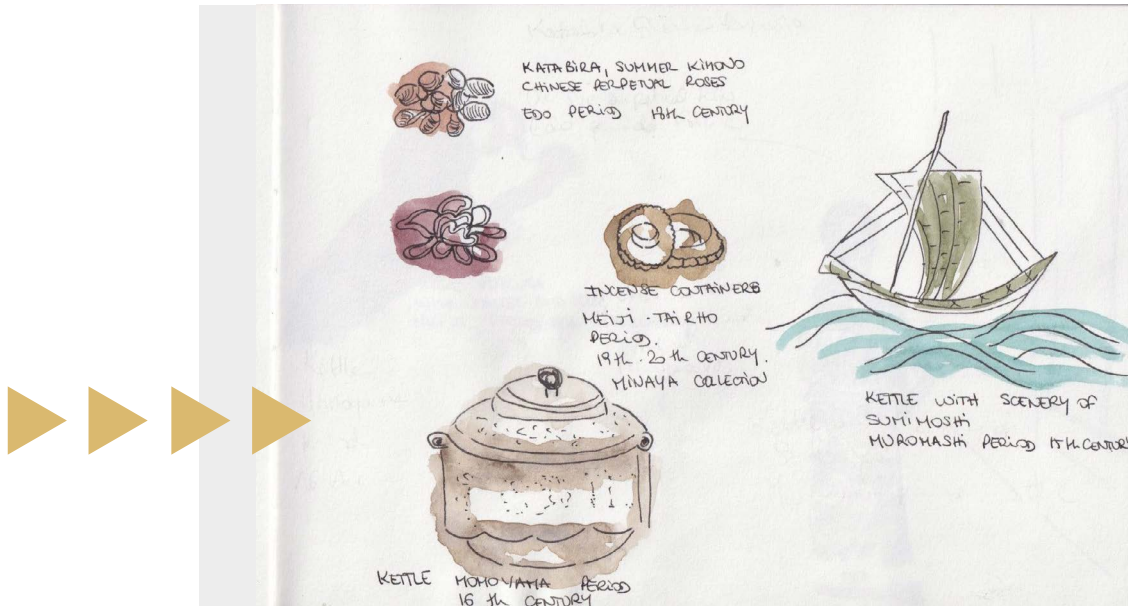 KATABIRA, SUMMER KIMONO
CHINESE PERPETUAL ROSES
EDO PERIOD 18th CENTURY
INCENSE CONTAINERS
MEIJI - TAIRHO
PERIOD.
19th - 20th CENTURY.
MINAYA COLLECTION
KETTLE WITH SCENERY OF
SUMIMOSHI
MUROMASHI PERIOD 15th CENTURY
KETTLE MOMOYAMA PERIOD
16 th CENTURY